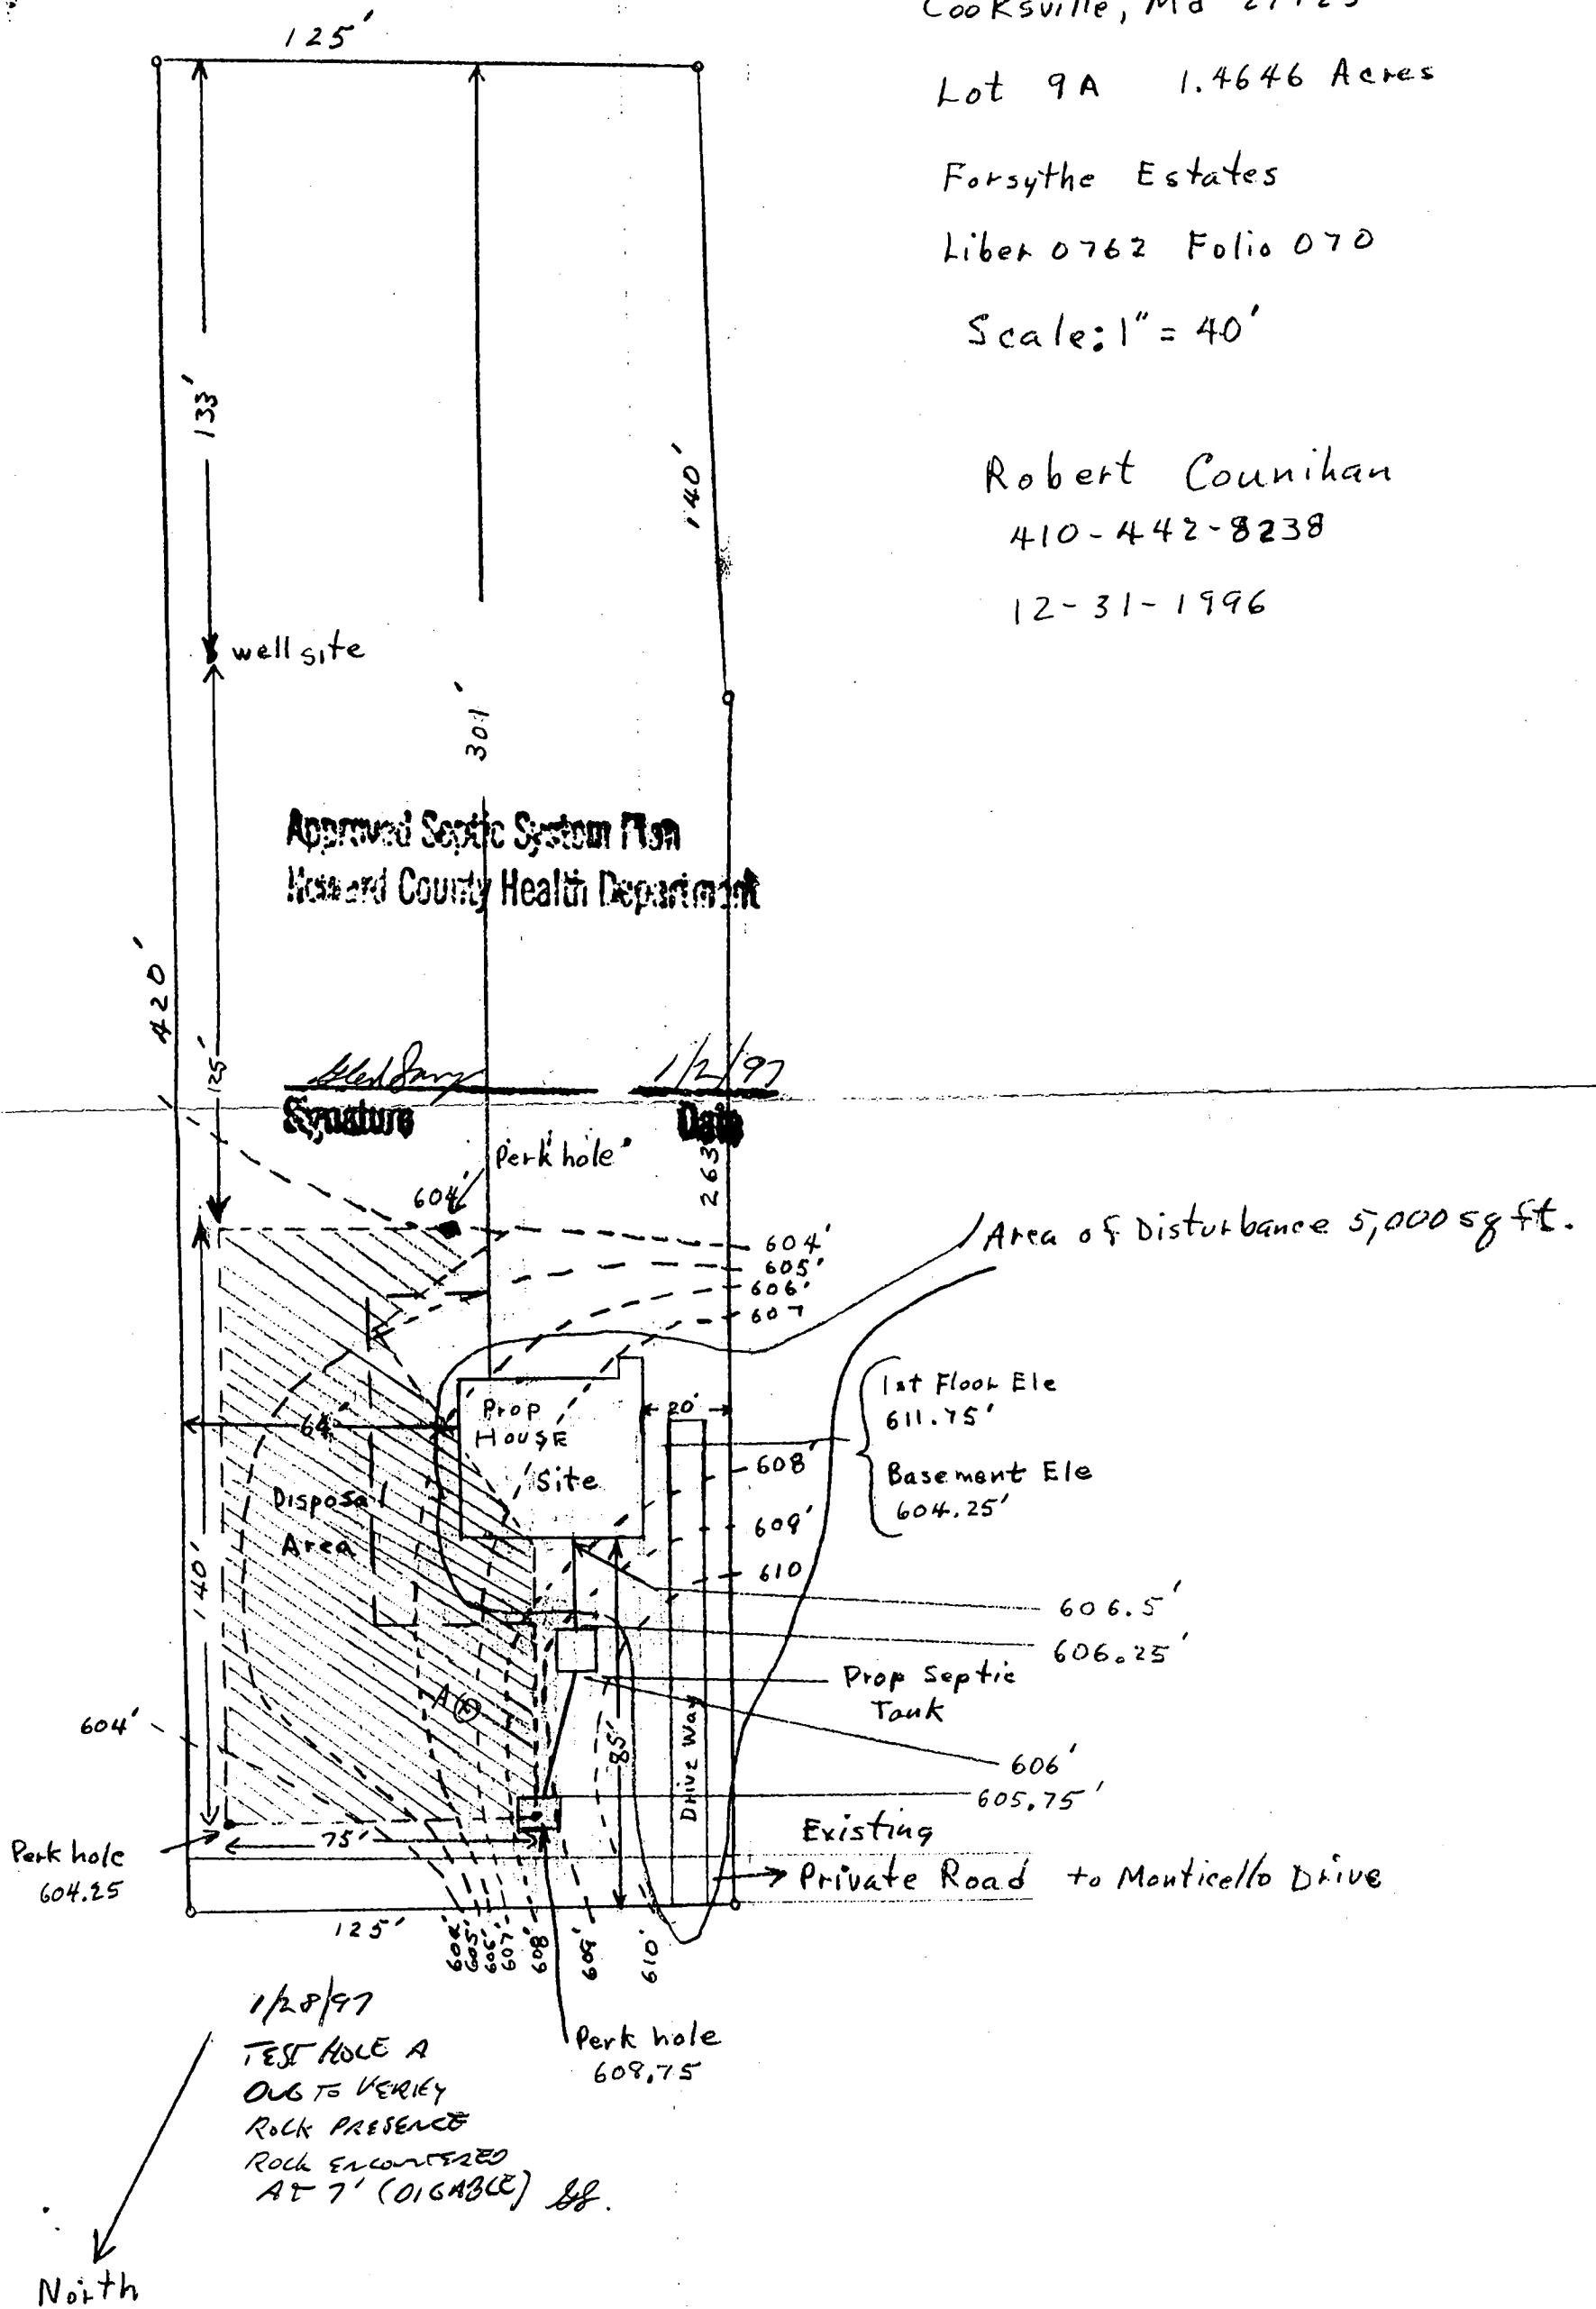 Cooksville, Md
Lot 9A 1.4646 Acres
Forsythe Estates
Liber 0762 Folio 070
Scale: 1" = 40'
Robert Counihan
410-442-8238
12-31-1996
125'
133'
140'
well site
301'
Approved Septic System Plan
Howard County Health Department
420'
125'
1/2/97
Signature
Date
Perk hole
263
604'
Area of Disturbance 5,000 sq ft.
604'
605'
606'
607
1st Floor Ele
611.75'
Basement Ele
604.25'
64'
20'
Prop
House
Site
Disposal
Area
608'
609'
610
140'
606.5'
606.25'
Prop Septic
Tank
A
604'
85'
Drive Way
606'
605.75'
75'
Perk hole
604.25
Existing
Private Road to Monticello Drive
125'
604'
605'
606'
607'
608'
609'
610'
Perk hole
608.75
1/28/97
TEST HOLE A
DUG TO VERIFY
ROCK PRESENCE
ROCK ENCOUNTERED
AT 7' (DIGABLE)
North